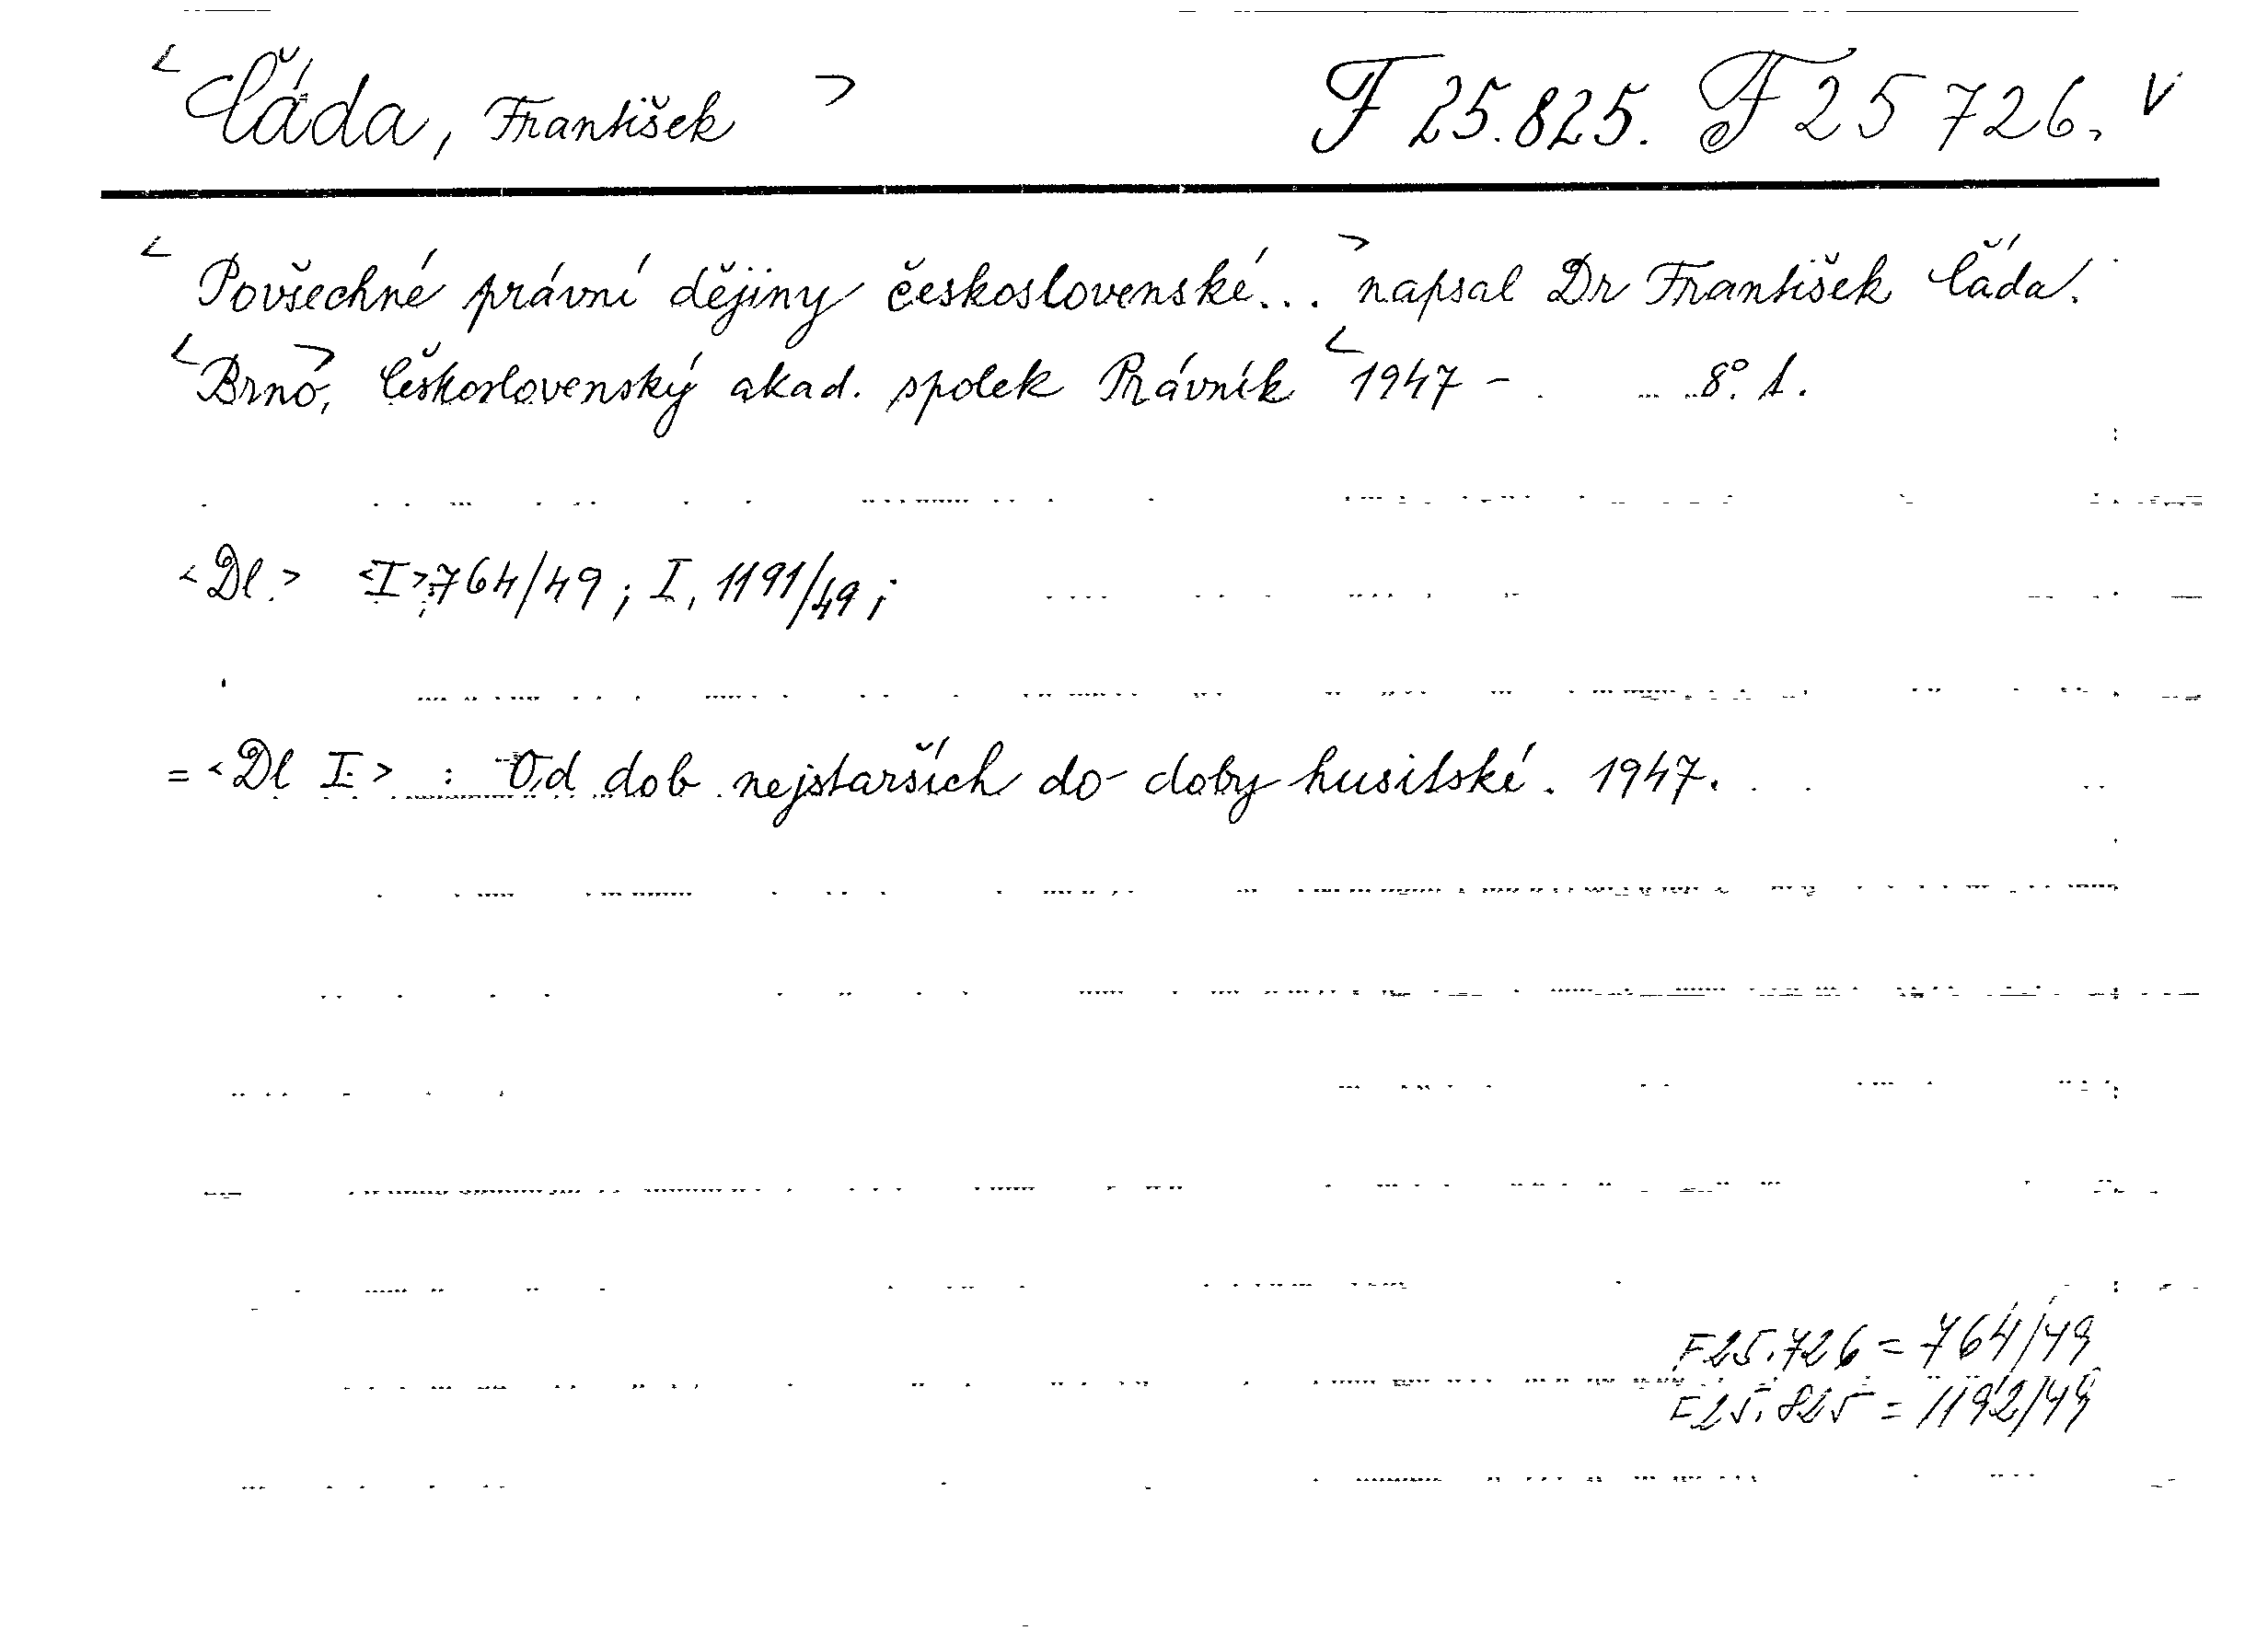 < Čáda, František > F 25.825. F 25 726. V
< Povšechné právní dějiny československé... > napsal Dr František Čáda.
< Brno >, Československý akad. spolek Právník < 1947 - 8°. 1.
< Dl. > < I > 764/49 ; I, 1191/49 ;
= < Dl I. > : Od dob nejstarších do doby husitské. 1947.
F25.726 = 764/49
F25.825 = 1192/49